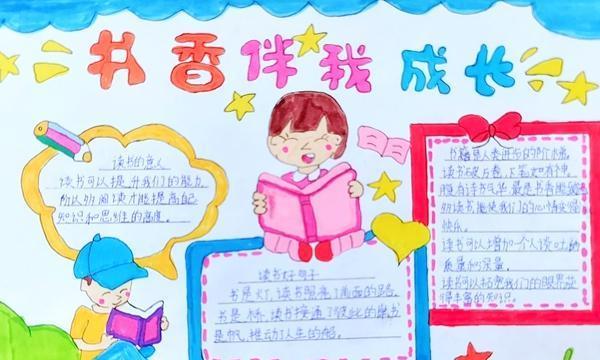 书香伴我成长
读书的意义
读书可以提升我们的能力
所以多阅读才能提高自己
知识和思维的高度。
读书好句子
书是灯,读书照亮了前面的路
书是桥,读书接通了彼此的
是帆,推动了人生的船。
书籍是人类进步的阶梯。
读书破万卷,下笔如有神。
腹有诗书气华 最是书香
多读书,能使我们的心情变得
快乐。
读书可以增加一个人谈吐的
质量和深量。
读书可以拓宽我们的眼界获
得丰富的知识。